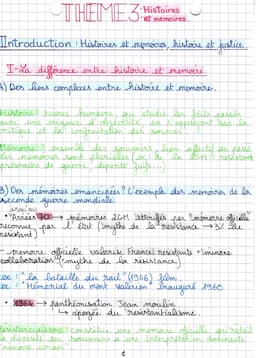 THEME 3: Histoires
et mémoires.
Introduction: Histoires et mémoires, histoire et justice.
I-La différence entre histoire et mémoire
A) Des liens complexes entre histoire et mémoire.
Histoire: science humaine qui étudie les faits passés
avec une exigence d'objectivité, en s'appuyant sur la
critique et la confrontation des sources.
Mémoire: ensemble des souvenirs, lien affectif au passé
les mémoires sont plurielles (ex de la 2GM: résistants
prisonniers de guerre, déportés juifs...)
B) Des mémoires émancipées? L'exemple des mémoires de la
seconde guerre mondiale
jusqu'au
• Années 70 → mémoires 2GM étouffées par "mémoire officielle"
reconnue par l'État (mythe de la résistance → résistant)
- mémoire officielle valorise France résistante + minore
collaboration (mythe de la résistance)
ex: "la bataille du rail" (1946) film
ex: "Mémorial du mont Valérien" inauguré 1960
• 1964 → panthéonisation Jean moulin
↳ apogée du résistantialisme.
Résistancialisme: constitue une mémoire officielle
diversité des souvenirs à une interprétation dominante
mémoire écran
1